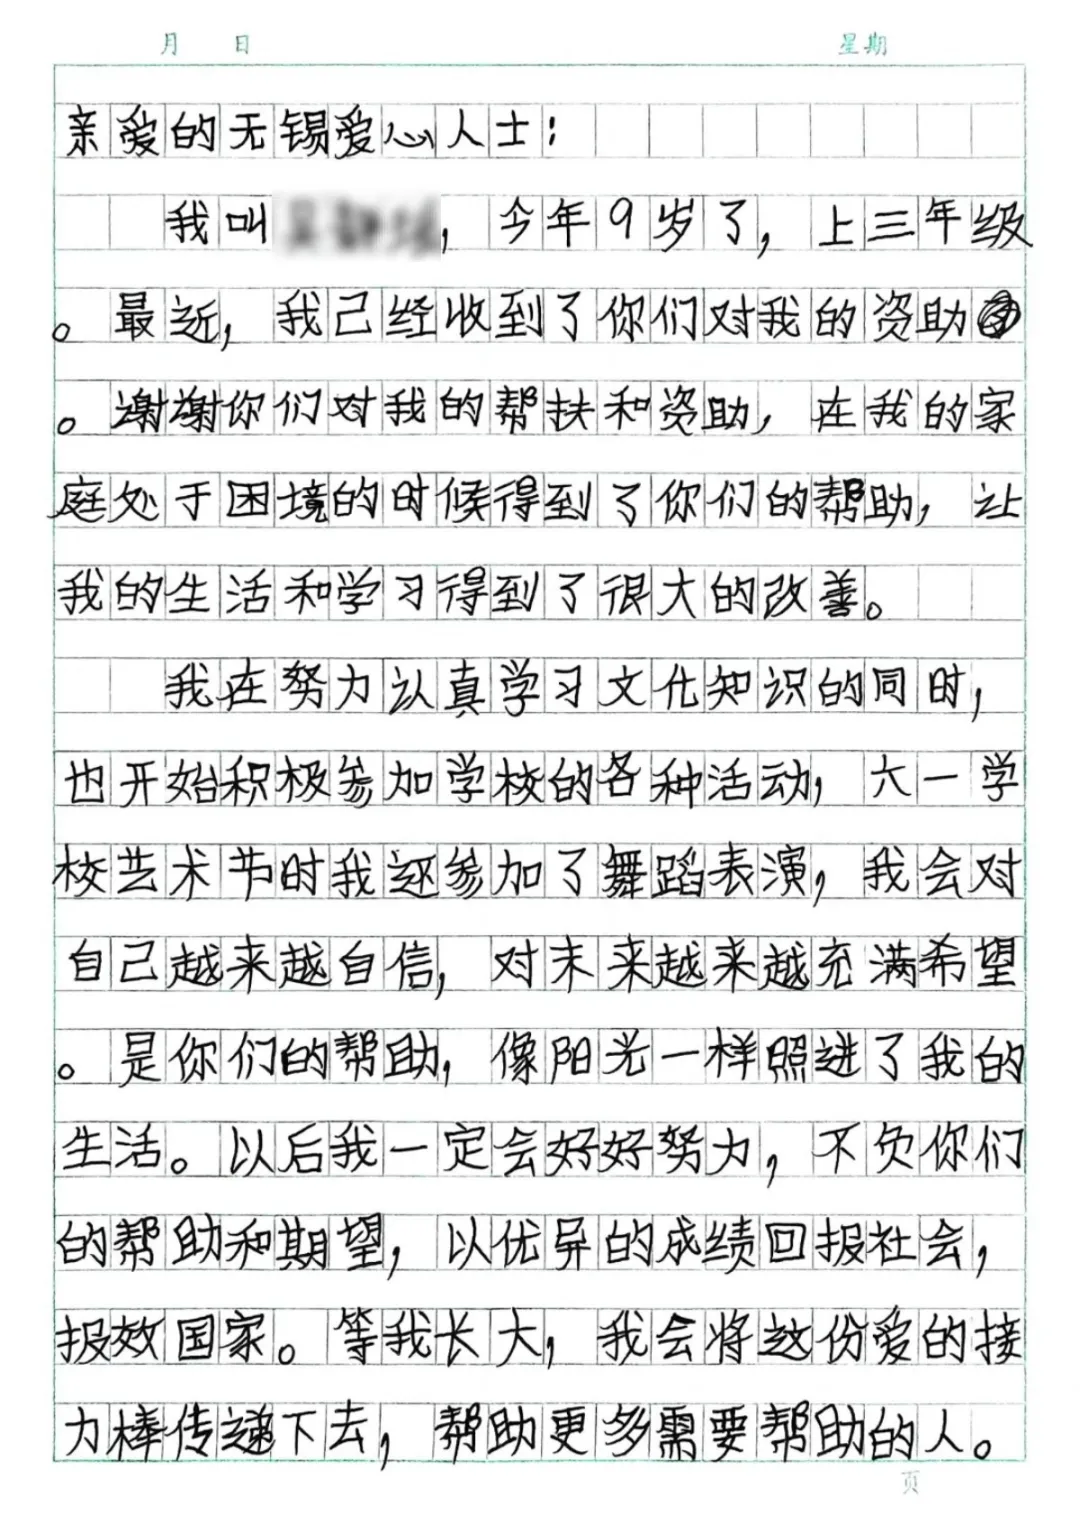 月 日 星期
亲爱的无锡爱心人士：
我叫，今年9岁了，上三年级
。最近，我已经收到了你们对我的资助
。谢谢你们对我的帮扶和资助，在我的家
庭处于困境的时候得到了你们的帮助，让
我的生活和学习得到了很大的改善。
我在努力认真学习文化知识的同时，
也开始积极参加学校的各种活动，六一学
校艺术节时我还参加了舞蹈表演，我会对
自己越来越自信，对未来越来越充满希望
。是你们的帮助，像阳光一样照进了我的
生活。以后我一定会好好努力，不负你们
的帮助和期望，以优异的成绩回报社会，
报效国家。等我长大，我会将这份爱的接
力棒传递下去，帮助更多需要帮助的人。
页